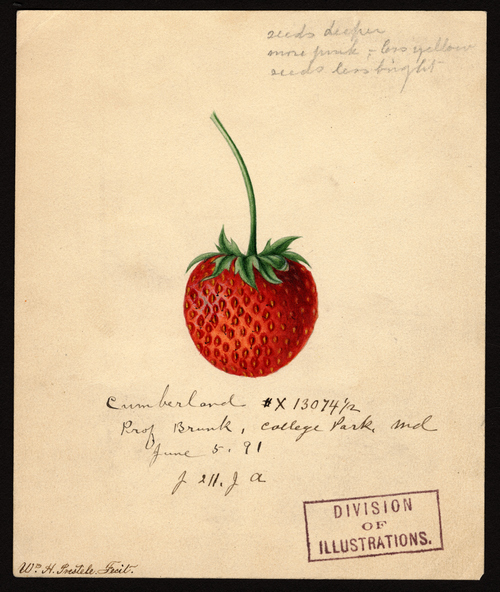 seeds deeper
more pink - less yellow
seeds less bright
Cumberland #X 13074½
Prof Brunk, College Park, Md
June 5. 91
DIVISION
OF
ILLUSTRATIONS.
Wm. H. Prestele. Fecit.